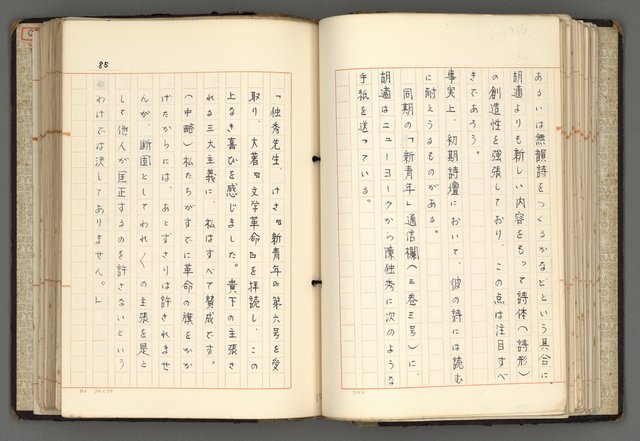 あるいは無韻詩をつくるかなどという具合に
胡適よりも新しい内容をもって詩体(詩形)
の創造性を強張しており、この点は注目すべ
きであろう。
事実上、初期詩壇において、彼の詩には読む
に耐えうるものがある。
同期の「新青年」通信欄(三巻三号)に、
胡適はニューヨークから陳独秀に次のような
手紙を送っている。
85
「独秀先生、けさ『新青年』第六号を受
取り、大著『文学革命』を拝読し、この
上なき喜びを感じました。貴下の主張さ
れる三大主義に、私はすべて賛成です。
(中略)私たちがすでに革命の旗をかか
げたからには、あとずさりは許されませ
んが、断固としてわれ〱の主張を是と
して他人が匡正するのを許さないという
わけでは決してありません。」